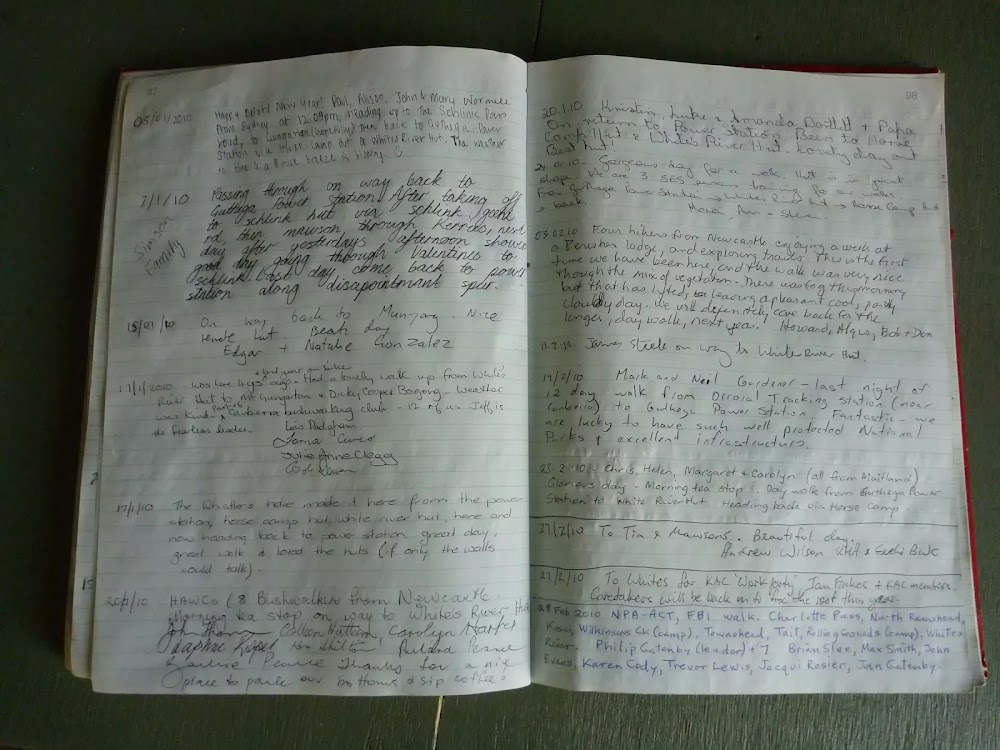 97
05/01/2010 Happy Belated New Year! Paul, Alison, John & Mary Wormell
From Sydney at 12.09pm, heading up to the Schlink Pass
road, to Gungartan (hopefully) then back to Guthega Power
Station via Horse Camp Hut & White's River Hut. The weather
is fine & a breeze is blowing.
7/1/10 Passing through on way back to
Guthega Power Station After taking off
to schlink hut via schlink
rd, then mawson, through Kerries, next
day after yesterdays afternoon shower
good day going through Valentines to
schlink. Last day come back to powr
station along disapointmant spur.
Simson
Family
15/01/10 On way back to Munyang. Nice
remote hut. Beaut day
Edgar + Natalie Gonzalez
17/1/2010 - Was here 4 yrs ago - Had a lovely walk up from White's
River Hut to Mt Gungartan & Dicky Cooper Bogong - Weather
was kind - Canberra bushwalking club - 12 of us Jeff is
the fearless leader.
Lois Padgham
Lorna
Julie Anne Clegg
Bob
17/1/10 The Whistlers have made it here from the power
station, horse camp hut, white river hut, here and
now heading back to power station. great day,
great walk & loved the huts (if only the walls
could talk).
20/1/10 HAWCs (8 Bushwalkers from Newcastle
Morning tea stop on way to White's River Hut
John Carolyn
Daphne
Pauline Pearce Thanks for a nice
place to park our bottoms & sip coffee!
98
20.1.10 Kristin, Luke & Amanda Bartlett + Papa
On return to Power Station. Been to Horse
Camp Hut & White's River Hut. Lovely day out
Best hut!
24.01.10 - Gorgeous day for a walk. Hut is in great
shape. We are 3 SES persons training for
from Guthega Power Station → Whites River Hut → Horse Camp Hut
→ back.
03.02.10 Four hikers from Newcastle enjoying a week at
a Perisher lodge, and exploring trails. This is the first
time we have been here, and the walk was very nice
though the mix of vegetation. There was fog this morning
but that has lifted, leaving a pleasant cool, partly
cloudy day. We will definitely come back for the
longer, day walk, next year. Howard, Bob + Don
11.2.10. James Steele on way to White River Hut.
19/2/10 Mark and Neil Gardiner - last night of
12 day walk from Orroral Tracking Station (near
Canberra) to Guthega Power Station. Fantastic - we
are lucky to have such well protected National
Parks & excellent infrastructure.
23.2.10 Chris, Helen, Margaret & Carolyn (all from Maitland)
Glorious day - Morning tea stop. Day walk from Guthega Power
Station to White River Hut. Heading back via Horse Camp
27/2/10 To Tin & Mawsons. Beautiful day.
Andrew Wilson
27/2/10 To Whites for KAC 'Work party' Jan + KAC members
Caretakers will be back up to the roof this year.
28 Feb 2010 NPA-ACT, FBI walk. Charlotte Pass, North Ramshead,
Kosci, Wilkinsons Ck (camp), Townsend, Tail, Rolling Grounds (camp), Whites
River. Philip Gatenby (leader) + 7 Brian Slee, Max Smith, John
Evans, Karen Cody, Trevor Lewis, Jacqui Rosier, Jan Gatenby.